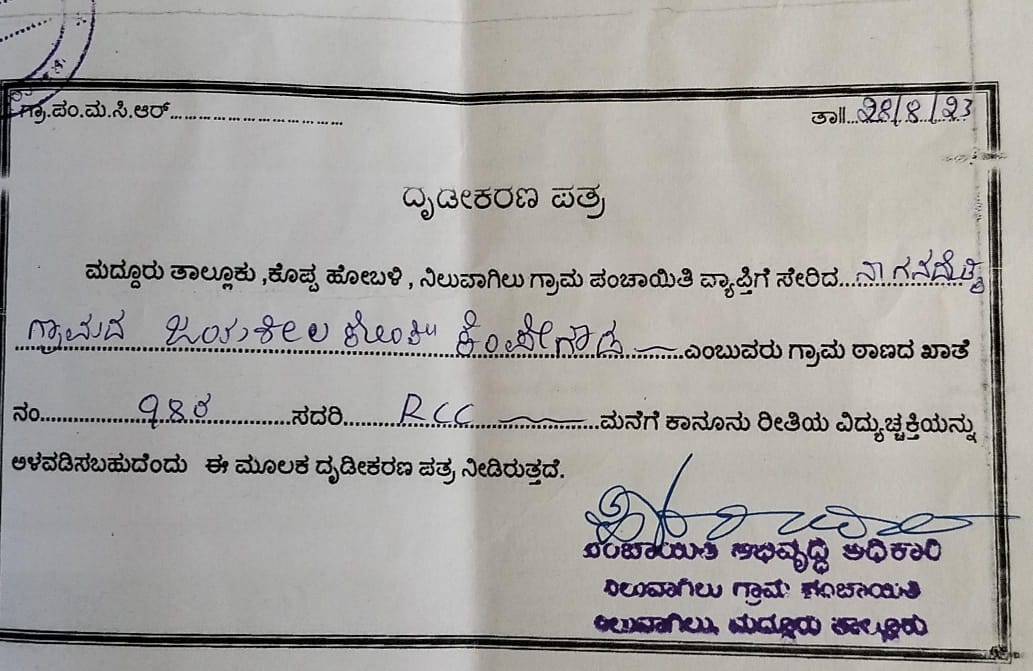 ಗ್ರಾ.ಪಂ.ಮ.ಸಿ.ಆರ್.............................. ತಾ||...28/8/23
ದೃಡೀಕರಣ ಪತ್ರ
ಮದ್ದೂರು ತಾಲ್ಲೂಕು ,ಕೊಪ್ಪ ಹೋಬಳಿ , ನಿಲುವಾಗಿಲು ಗ್ರಾಮ ಪಂಚಾಯಿತಿ ವ್ಯಾಪ್ತಿಗೆ ಸೇರಿದ...
ಗ್ರಾಮದ ಜಯಶೀಲ ಕೋಂ ಕೆಂಪೇಗೌಡ......ಎಂಬುವರು ಗ್ರಾಮ ಠಾಣದ ಖಾತೆ
ನಂ..............ಸದರಿ........RCC..............ಮನೆಗೆ ಕಾನೂನು ರೀತಿಯ ವಿದ್ಯುಚ್ಚಕ್ತಿಯನ್ನು
ಅಳವಡಿಸಬಹುದೆಂದು ಈ ಮೂಲಕ ದೃಡೀಕರಣ ಪತ್ರ ನೀಡಿರುತ್ತದೆ.
ಪಂಚಾಯಿತಿ ಅಭಿವೃದ್ಧಿ ಅಧಿಕಾರಿ
ನಿಲುವಾಗಿಲು ಗ್ರಾಮ ಪಂಚಾಯಿತಿ
ನಿಲುವಾಗಿಲು, ಮದ್ದೂರು ತಾಲ್ಲೂಕು